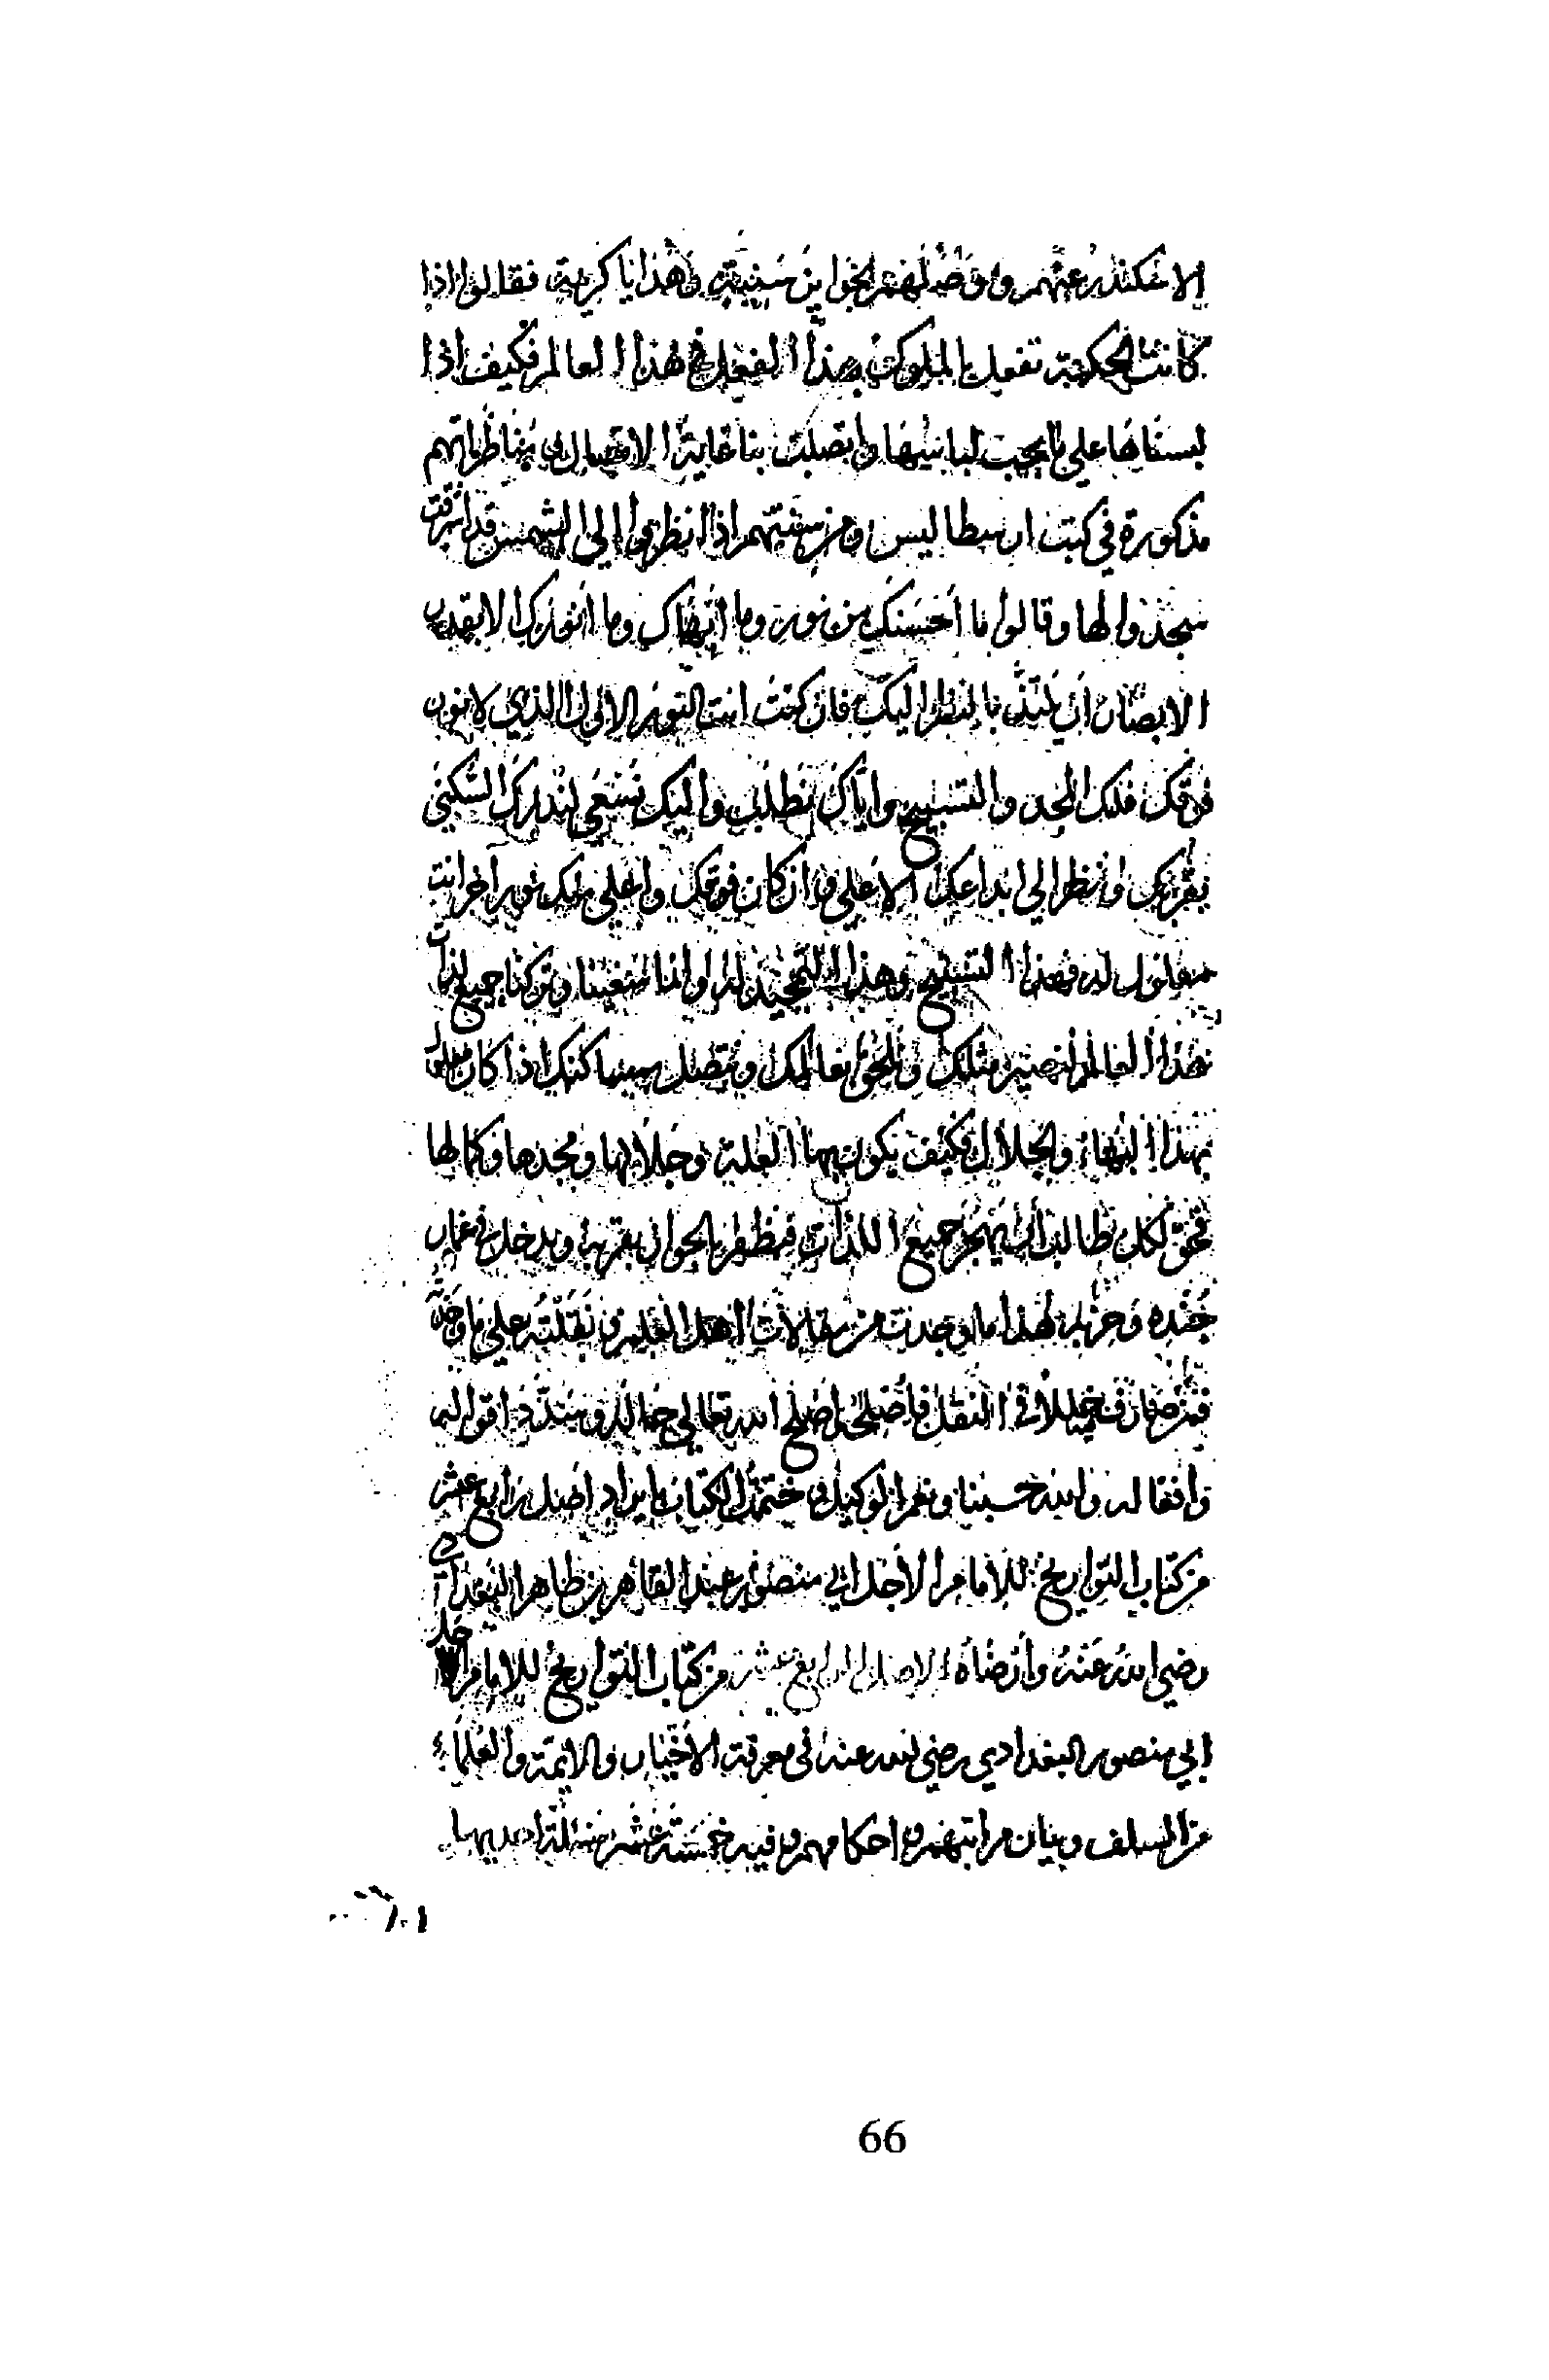 الاسكندر عنهم ووصلهم بجوايز سنية وهدايا كريمة فقالوا اذا
كانت الحكمة تفعل بالملوك هذا الفعل في هذا العالم فكيف اذا
لبسناها على ما يجب لباسها واتصلت بنا غاية الاتصال ومناظراتهم
مذكورة في كتب ارسطاليس ومن سنتهم اذا نظروا الى الشمس قد اشرقت
سجدوا لها وقالوا ما احسنك من نور وما ابهاك وما انورك لا يقدر
الابصار ان تلتذ بالنظر اليك فان كنت انت النور الاول الذي لا نور
فوقك فلك المجد والتسبيح واياك نطلب واليك نسعى لندرك السكنى
بقربك وننظر الى ابداعك الاعلى وان كان فوقك واعلى منك نور اخر انت
معلول له فهذا التسبيح وهذا التمجيد له وانما سعينا وتركنا جميع لذات
هذا العالم لنصير مثلك ونلحق بعالمك ونتصل بساكنك اذا كان المعلول
بهذا البهاء والجلال فكيف يكون بهاء العلة وجلالها ومجدها وكمالها
فحق لكل طالب ان يهجر جميع اللذات فيظفر بالجوار بقربه ويدخل في غمار
جنده وحزبه هذا ما وجدت من مقالات اهل العلم ونقلته على ما وجدته
فمن صادف خللا في النقل فاصلحه اصلح الله تعالى حاله وسدد اقواله
وافعاله والله حسبنا ونعم الوكيل وختمت الكتاب بايراد اصل رابع عشر
من كتاب التواريخ للامام الاجل ابي منصور عبد القاهر بن طاهر البغدادي
رضي الله عنه وارضاه الاصل الرابع عشر من كتاب التواريخ للامام الاجل
ابي منصور البغدادي رضي الله عنه في معرفة الاخيار والائمة والعلماء
من السلف وبيان مراتبهم واحكامهم وفيه خمسة عشر مسئلة
66